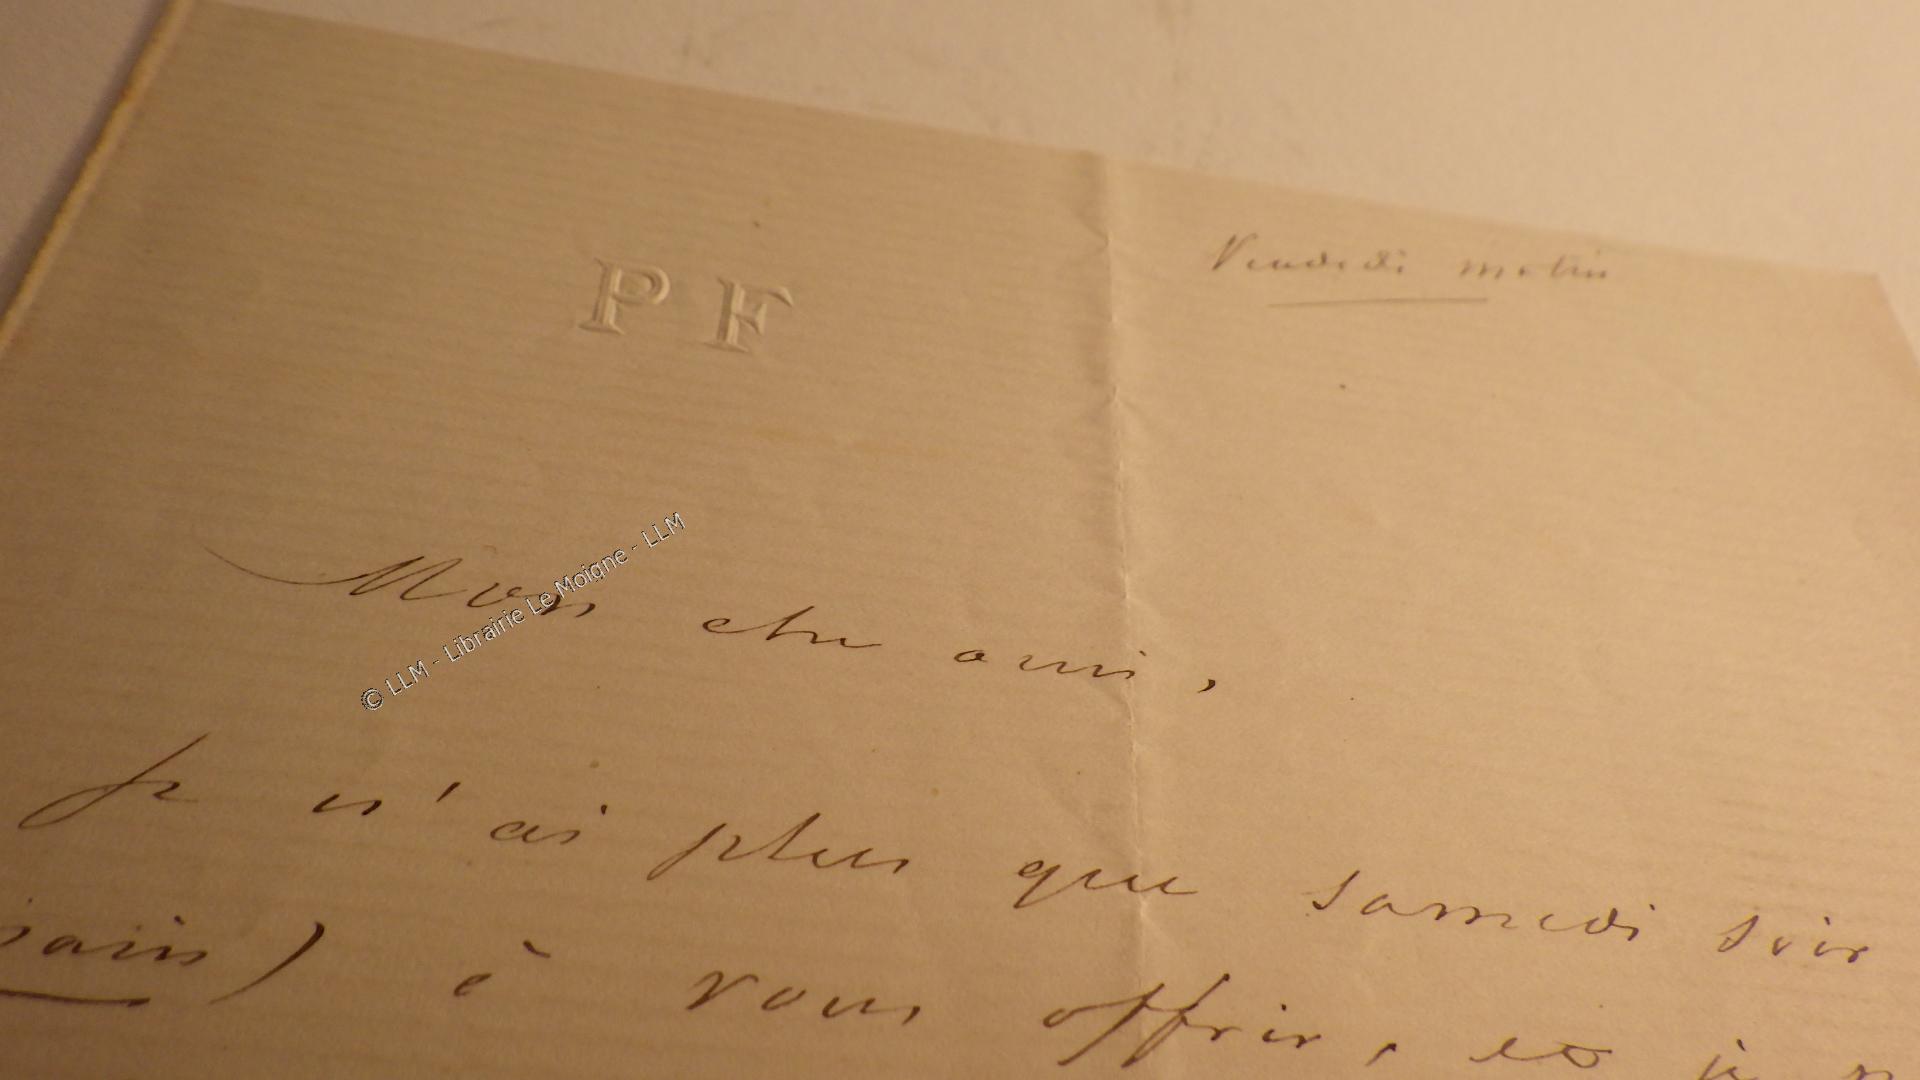 PF
Vendredi matin
Mon cher ami,
© LLM - Librairie Le Moigne - LLM
Je n'ai plus que samedi soir
) à vous offrir, et je